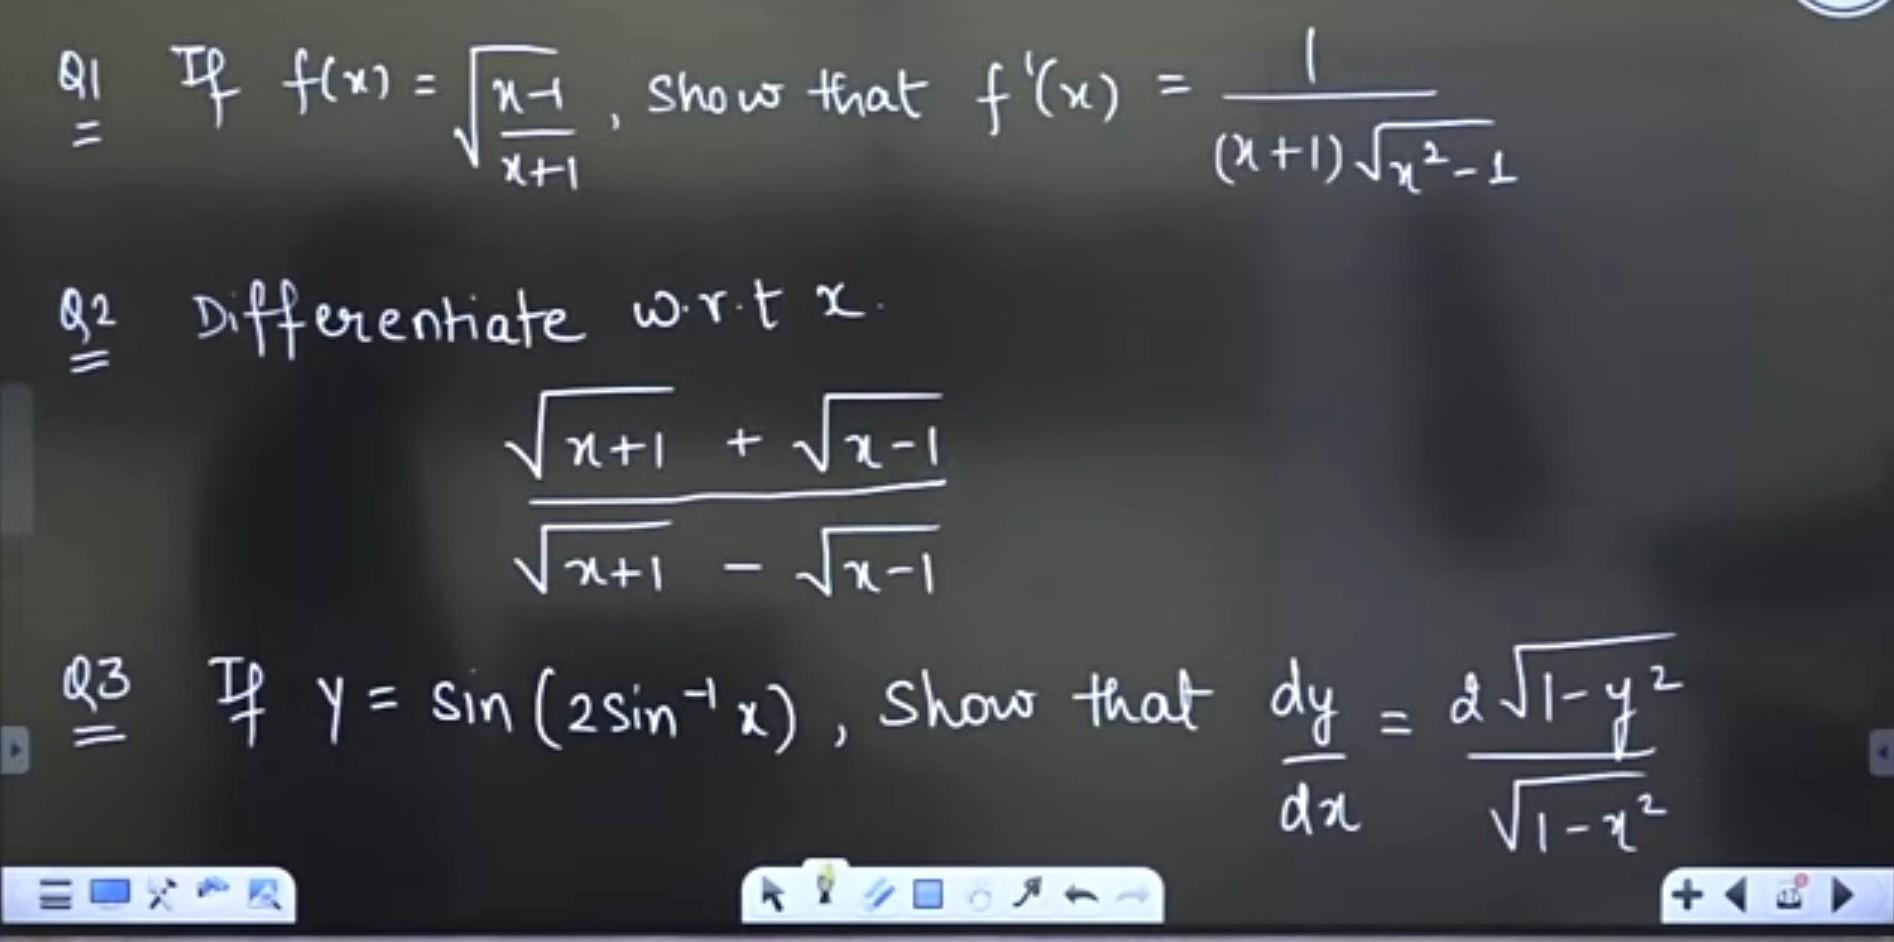 Q1 If f(x) = √(x-1/x+1), Show that f'(x) = 1/((x+1)√(x²-1))
Q2 Differentiate w.r.t x.
(√(x+1) + √(x-1))/(√(x+1) - √(x-1))
Q3 If y = sin(2sin⁻¹x), Show that dy/dx = 2√(1-y²)/√(1-x²)